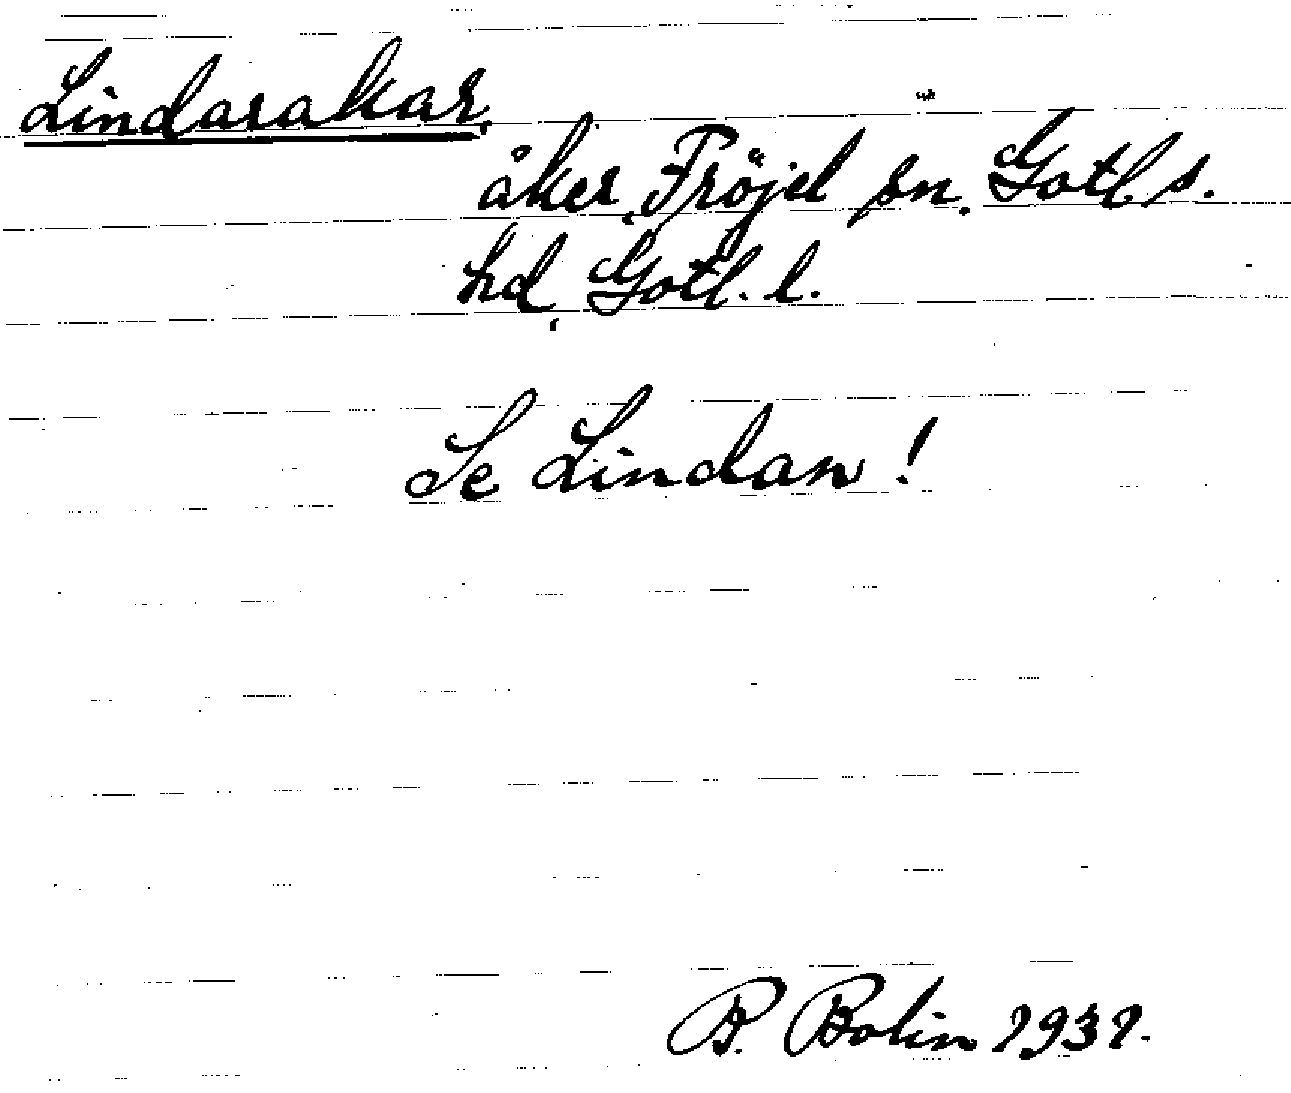 Lindarakar,
åker, Fröjel sn. Gotl. s.
hd, Gotl. l.
Se Lindan!
P. Bolin 1931.